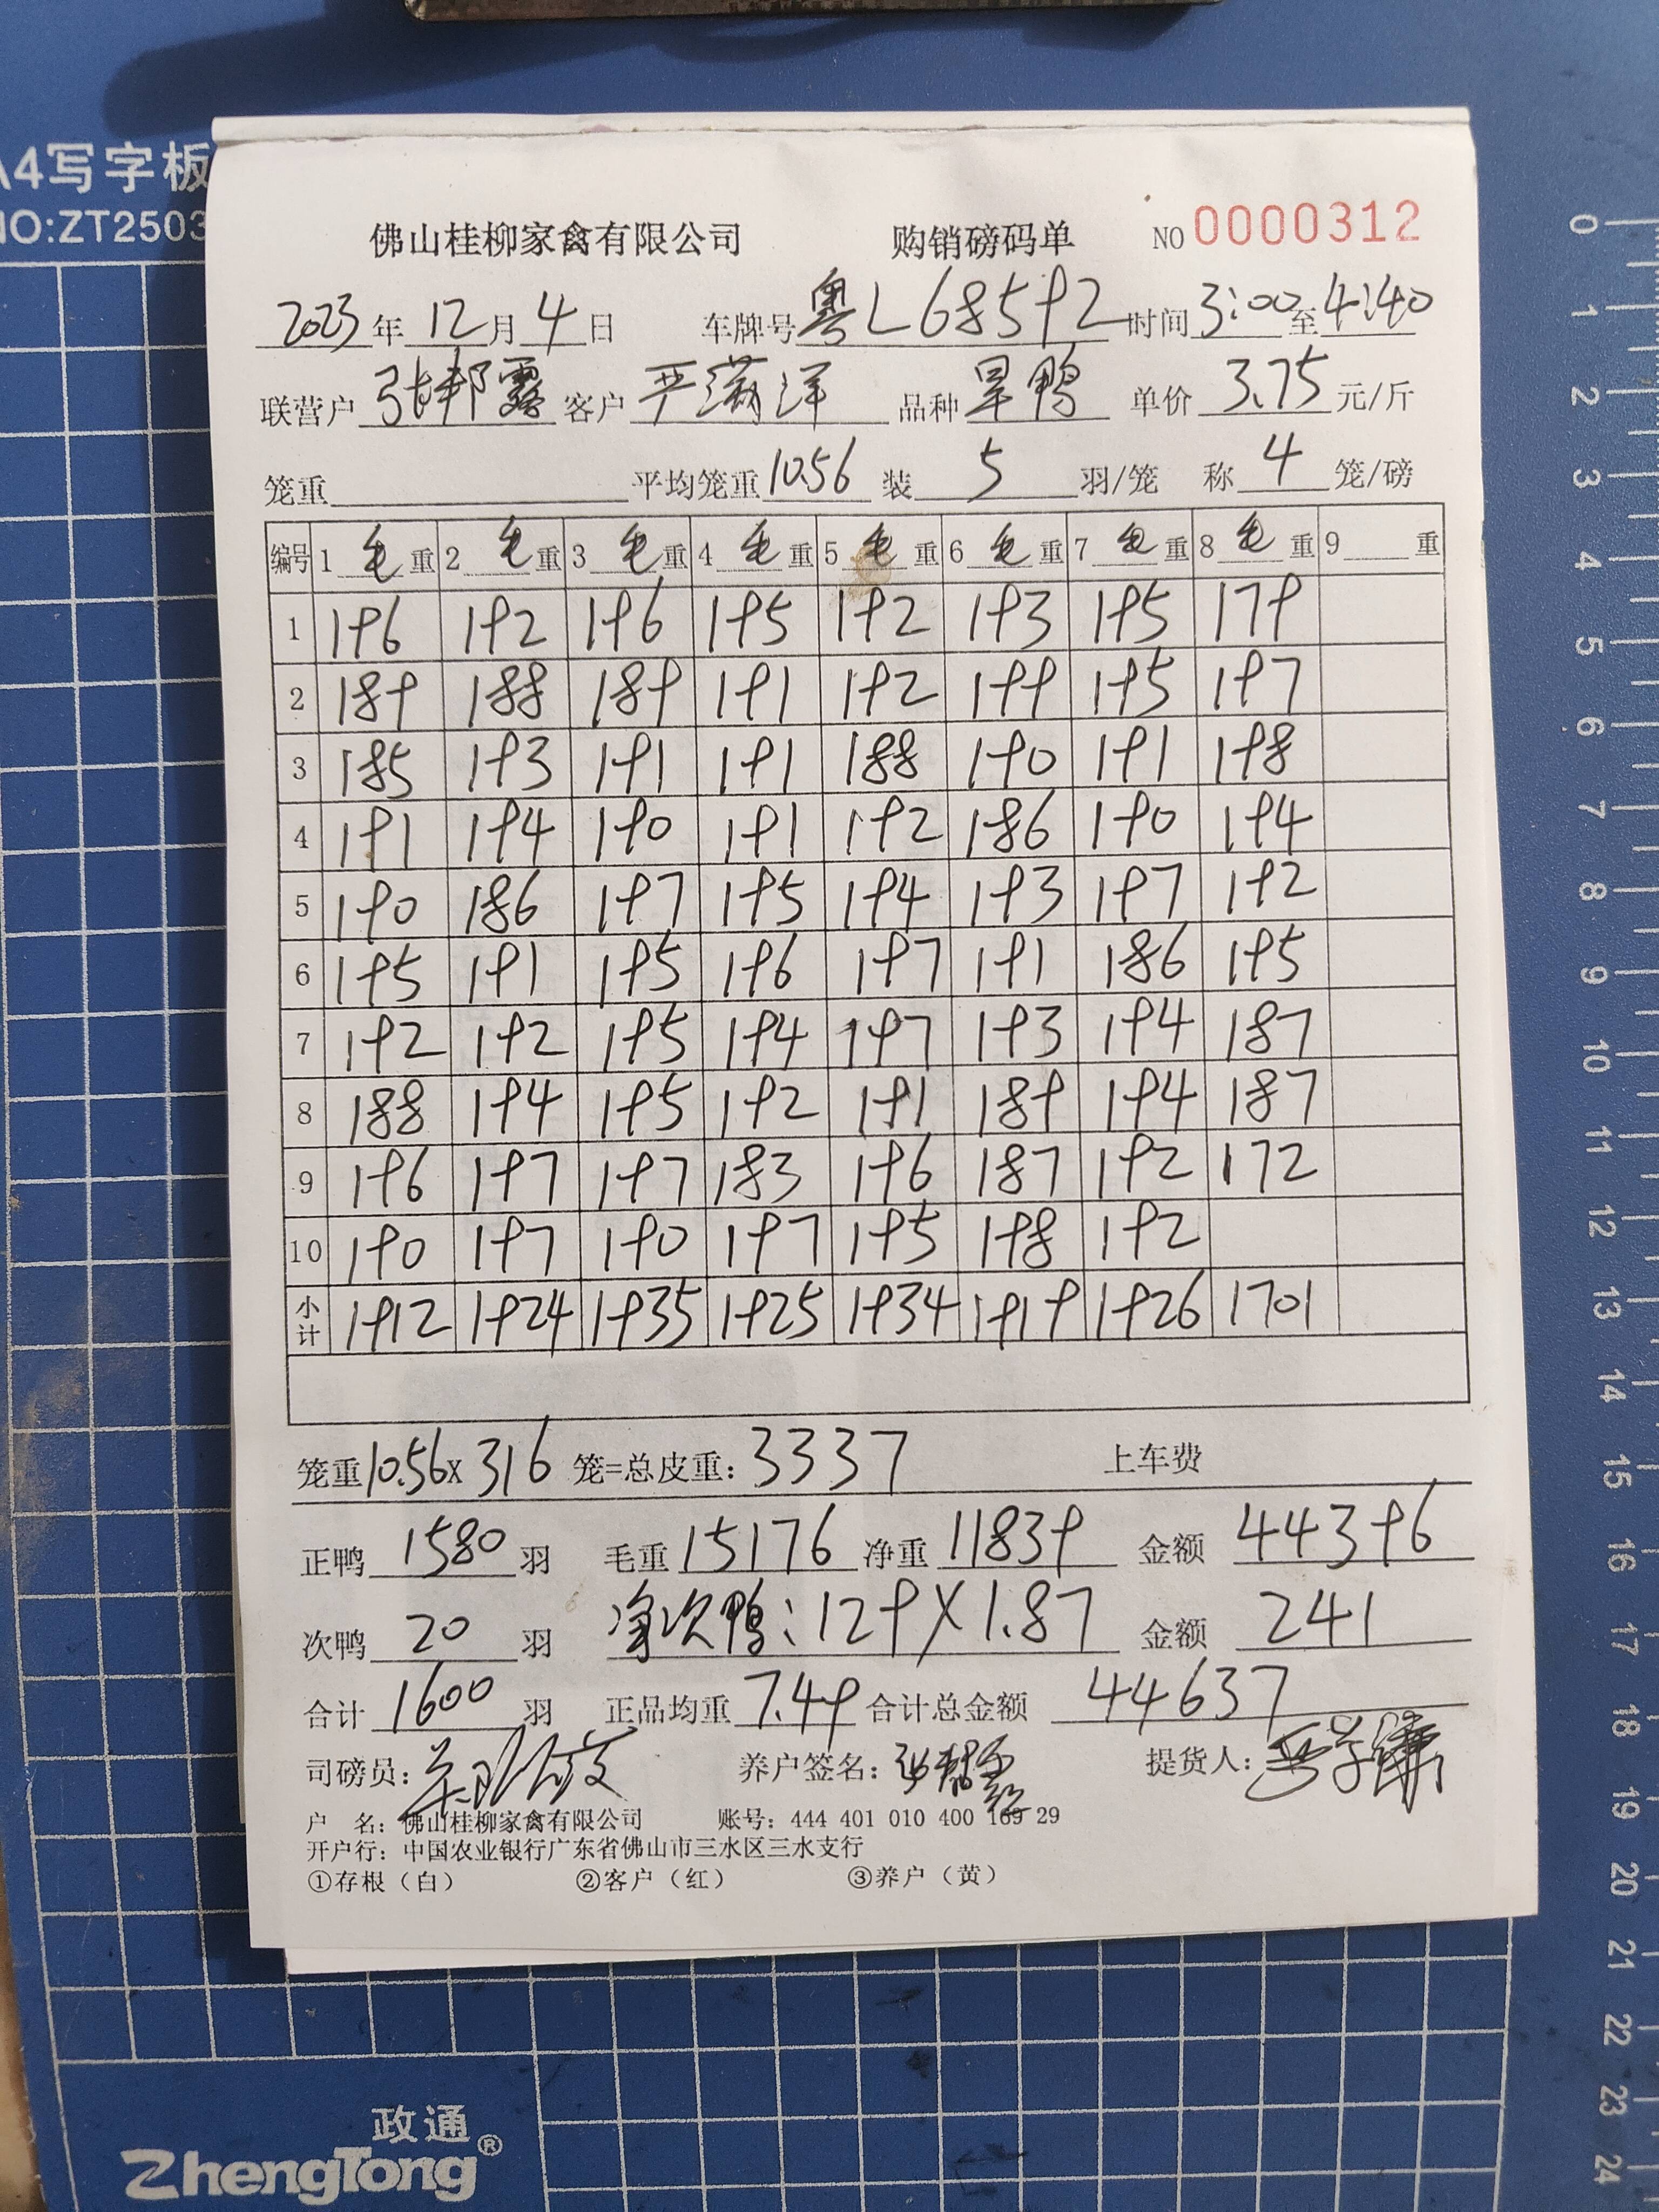 A4写字板
NO:ZT2503
佛山桂柳家禽有限公司 购销磅码单 NO 0000312
2023年12月4日 车牌号粤L68592 时间3:00至4:40
联营户 张邦露 客户 严满洋 品种 旱鸭 单价 3.75 元/斤
笼重 平均笼重 10.56 装 5 羽/笼 称 4 笼/磅
编号 1 毛 重 2 毛 重 3 毛 重 4 毛 重 5 毛 重 6 毛 重 7 毛 重 8 毛 重 9 重
1 196 192 196 195 192 193 195 179
2 189 188 189 191 192 199 195 197
3 185 193 191 191 188 190 191 198
4 191 194 190 191 192 186 190 194
5 190 186 197 195 194 193 197 192
6 195 191 195 196 197 191 186 195
7 192 192 195 194 197 193 194 187
8 188 194 195 192 191 189 194 187
9 196 197 197 183 196 187 192 172
10 190 197 190 197 195 198 192
小计 1912 1924 1935 1925 1934 1919 1926 1701
笼重 10.56 x 316 笼=总皮重: 3337 上车费
正鸭 1580 羽 毛重 15176 净重 11839 金额 44396
次鸭 20 羽 净次鸭: 129 X 1.87 金额 241
合计 1600 羽 正品均重 7.49 合计总金额 44637
司磅员: 养户签名: 张邦露 提货人:
户 名: 佛山桂柳家禽有限公司 账号: 444 401 010 400 169 29
开户行: 中国农业银行广东省佛山市三水区三水支行
①存根（白） ②客户（红） ③养户（黄）
0
1
2
3
4
5
6
7
8
9
10
11
12
13
14
15
16
17
18
19
20
21
22
23
24
政通
ZhengTong®